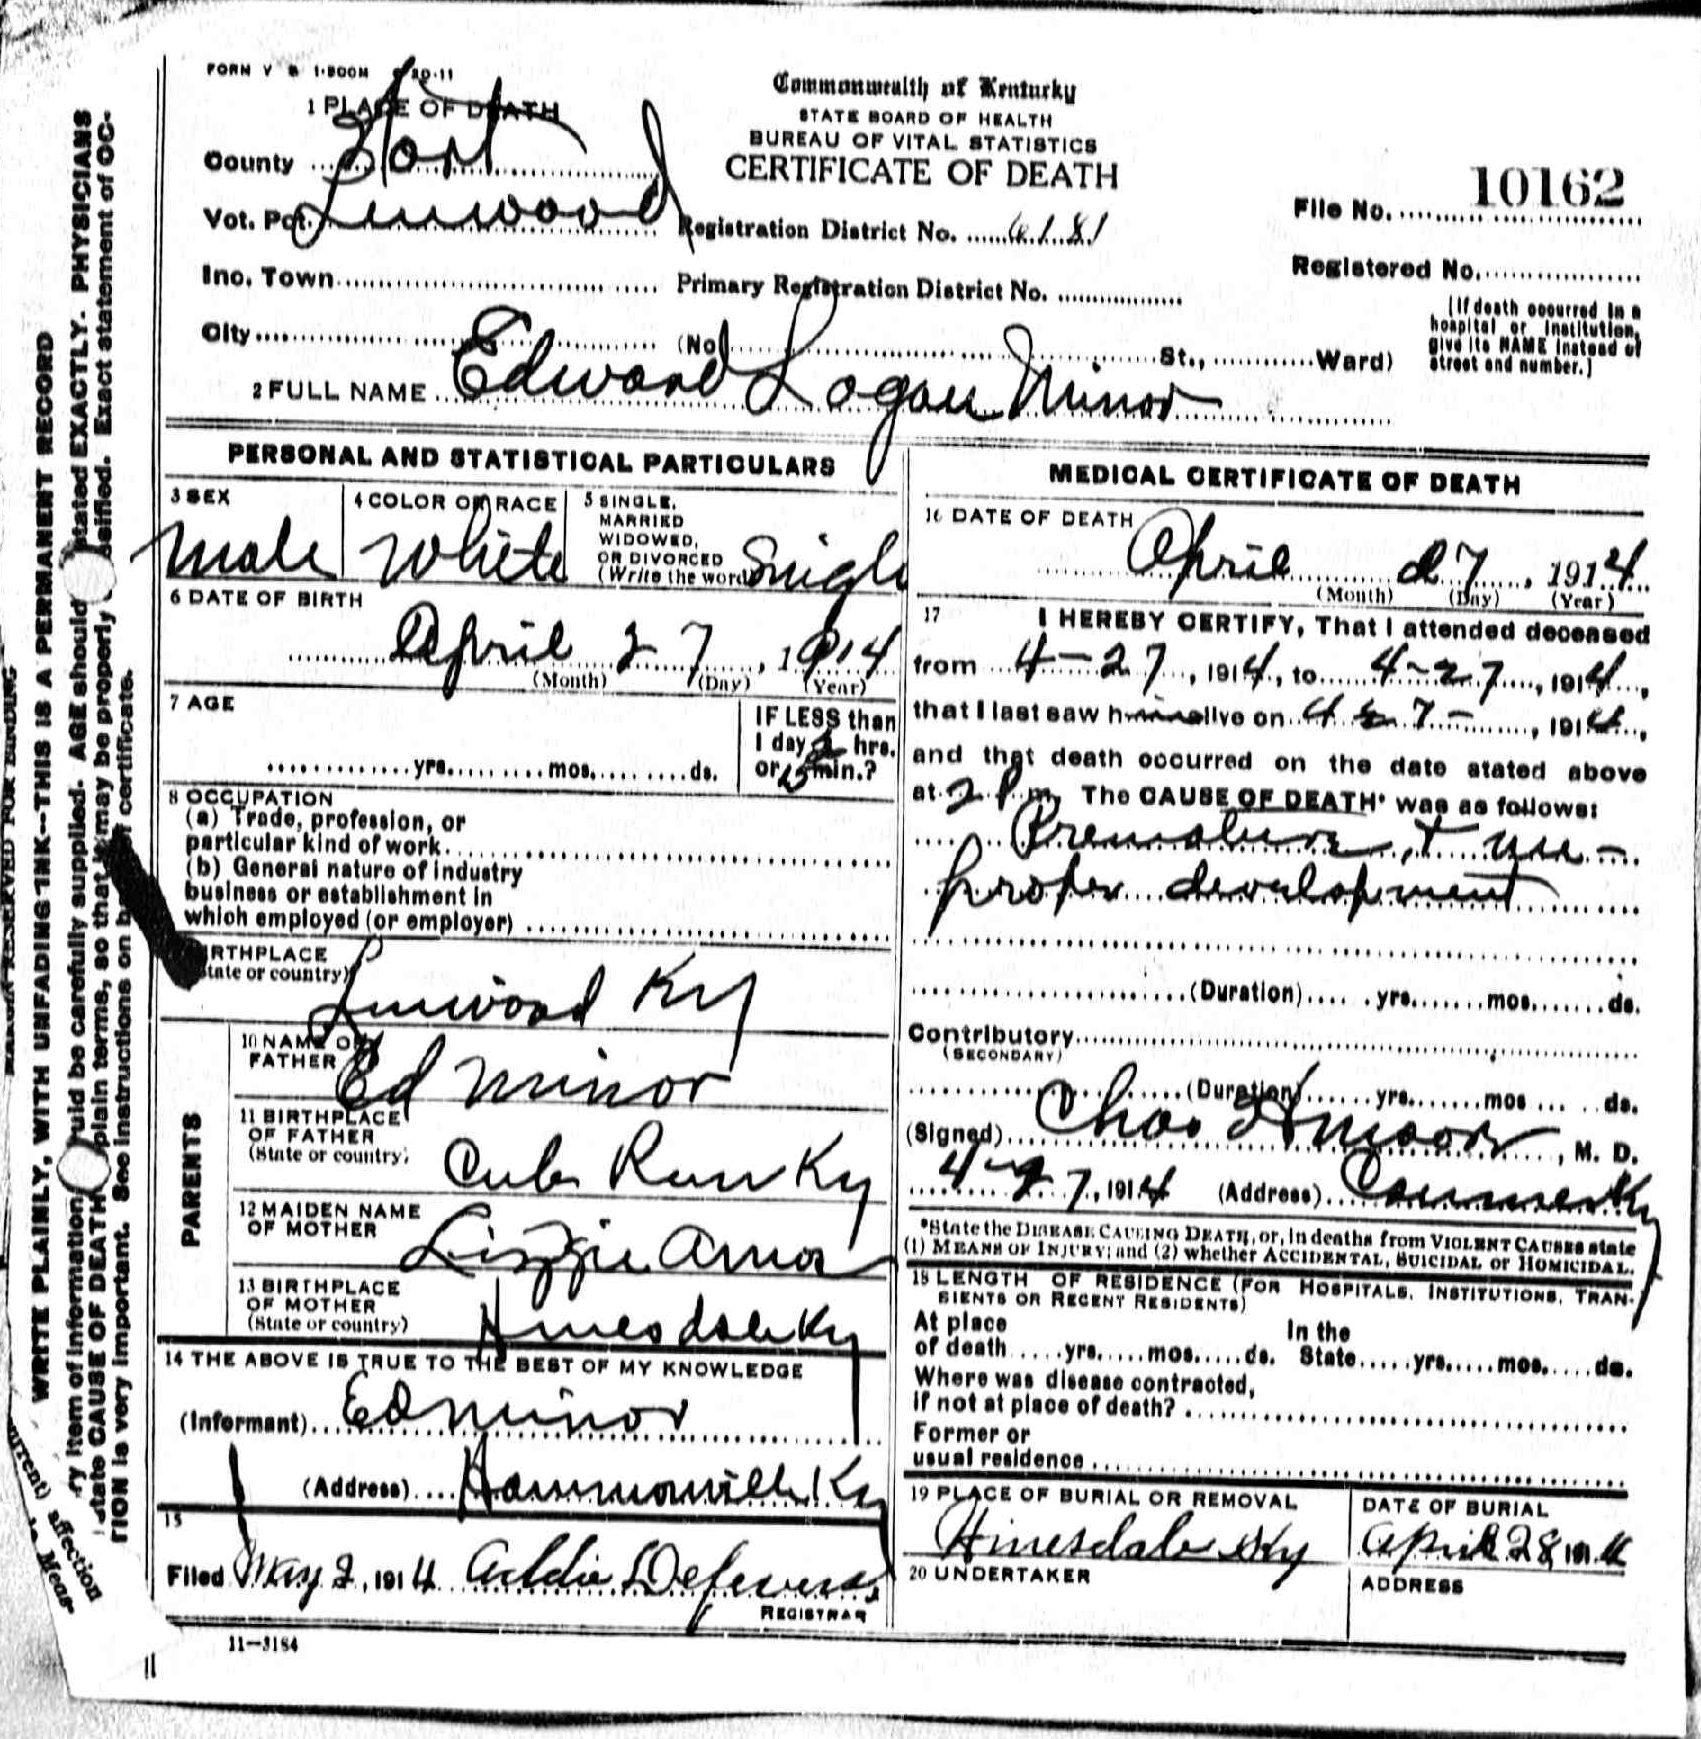 FORM V S 1-500M 20-11
1 PLACE OF DEATH
Commonwealth of Kentucky
STATE BOARD OF HEALTH
BUREAU OF VITAL STATISTICS
CERTIFICATE OF DEATH
County Hart
Vot. Pct. Linwood Registration District No. 6181
File No. 10162
Inc. Town Primary Registration District No.
Registered No.
City (No. St., Ward)
(If death occurred in a
hospital or institution,
give its NAME instead of
street and number.)
2 FULL NAME Edward Logan Minor
PERSONAL AND STATISTICAL PARTICULARS
3 SEX
Male
4 COLOR OR RACE
White
5 SINGLE,
MARRIED
WIDOWED,
OR DIVORCED
(Write the word) Single
6 DATE OF BIRTH
April 27, 1914
(Month) (Day) (Year)
7 AGE
yrs. mos. ds.
IF LESS than
1 day 2 hrs.
or 15 min.?
8 OCCUPATION
(a) Trade, profession, or
particular kind of work
(b) General nature of industry
business or establishment in
which employed (or employer)
BIRTHPLACE
(State or country)
Linwood Ky
PARENTS
10 NAME OF
FATHER
Ed Minor
11 BIRTHPLACE
OF FATHER
(State or country)
Cub Run Ky
12 MAIDEN NAME
OF MOTHER
Lizzie Amos
13 BIRTHPLACE
OF MOTHER
(State or country)
Hinesdale Ky
14 THE ABOVE IS TRUE TO THE BEST OF MY KNOWLEDGE
(Informant) Ed Minor
(Address) Hammonville Ky
15
Filed May 2, 1914 Addie Defevers
REGISTRAR
11-3184
MEDICAL CERTIFICATE OF DEATH
16 DATE OF DEATH
April 27, 1914
(Month) (Day) (Year)
17 I HEREBY CERTIFY, That I attended deceased
from 4-27, 1914, to 4-27, 1914,
that I last saw him alive on 4 27-, 1914,
and that death occurred on the date stated above
at 2 P m. The CAUSE OF DEATH* was as follows:
Premature & un-
proper development
(Duration) yrs. mos. ds.
Contributory
(SECONDARY)
(Duration) yrs. mos. ds.
(Signed) Chas H Moore, M. D.
4-27, 1914 (Address) Canmer Ky
*State the DISEASE CAUSING DEATH, or, in deaths from VIOLENT CAUSES state
(1) MEANS OF INJURY; and (2) whether ACCIDENTAL, SUICIDAL or HOMICIDAL.
18 LENGTH OF RESIDENCE (FOR HOSPITALS, INSTITUTIONS, TRAN-
SIENTS OR RECENT RESIDENTS)
At place
of death yrs. mos. ds.
In the
State yrs. mos. ds.
Where was disease contracted,
if not at place of death?
Former or
usual residence
19 PLACE OF BURIAL OR REMOVAL
Hinesdale Ky
DATE OF BURIAL
April 28 1914
20 UNDERTAKER
ADDRESS
MARGIN RESERVED FOR BINDING
WRITE PLAINLY, WITH UNFADING INK--THIS IS A PERMANENT RECORD
ry item of information uld be carefully supplied. AGE should stated EXACTLY. PHYSICIANS
state CAUSE OF DEATH plain terms, so that it may be properly ssified. Exact statement of OC-
TION is very important. See instructions on back of certificate.